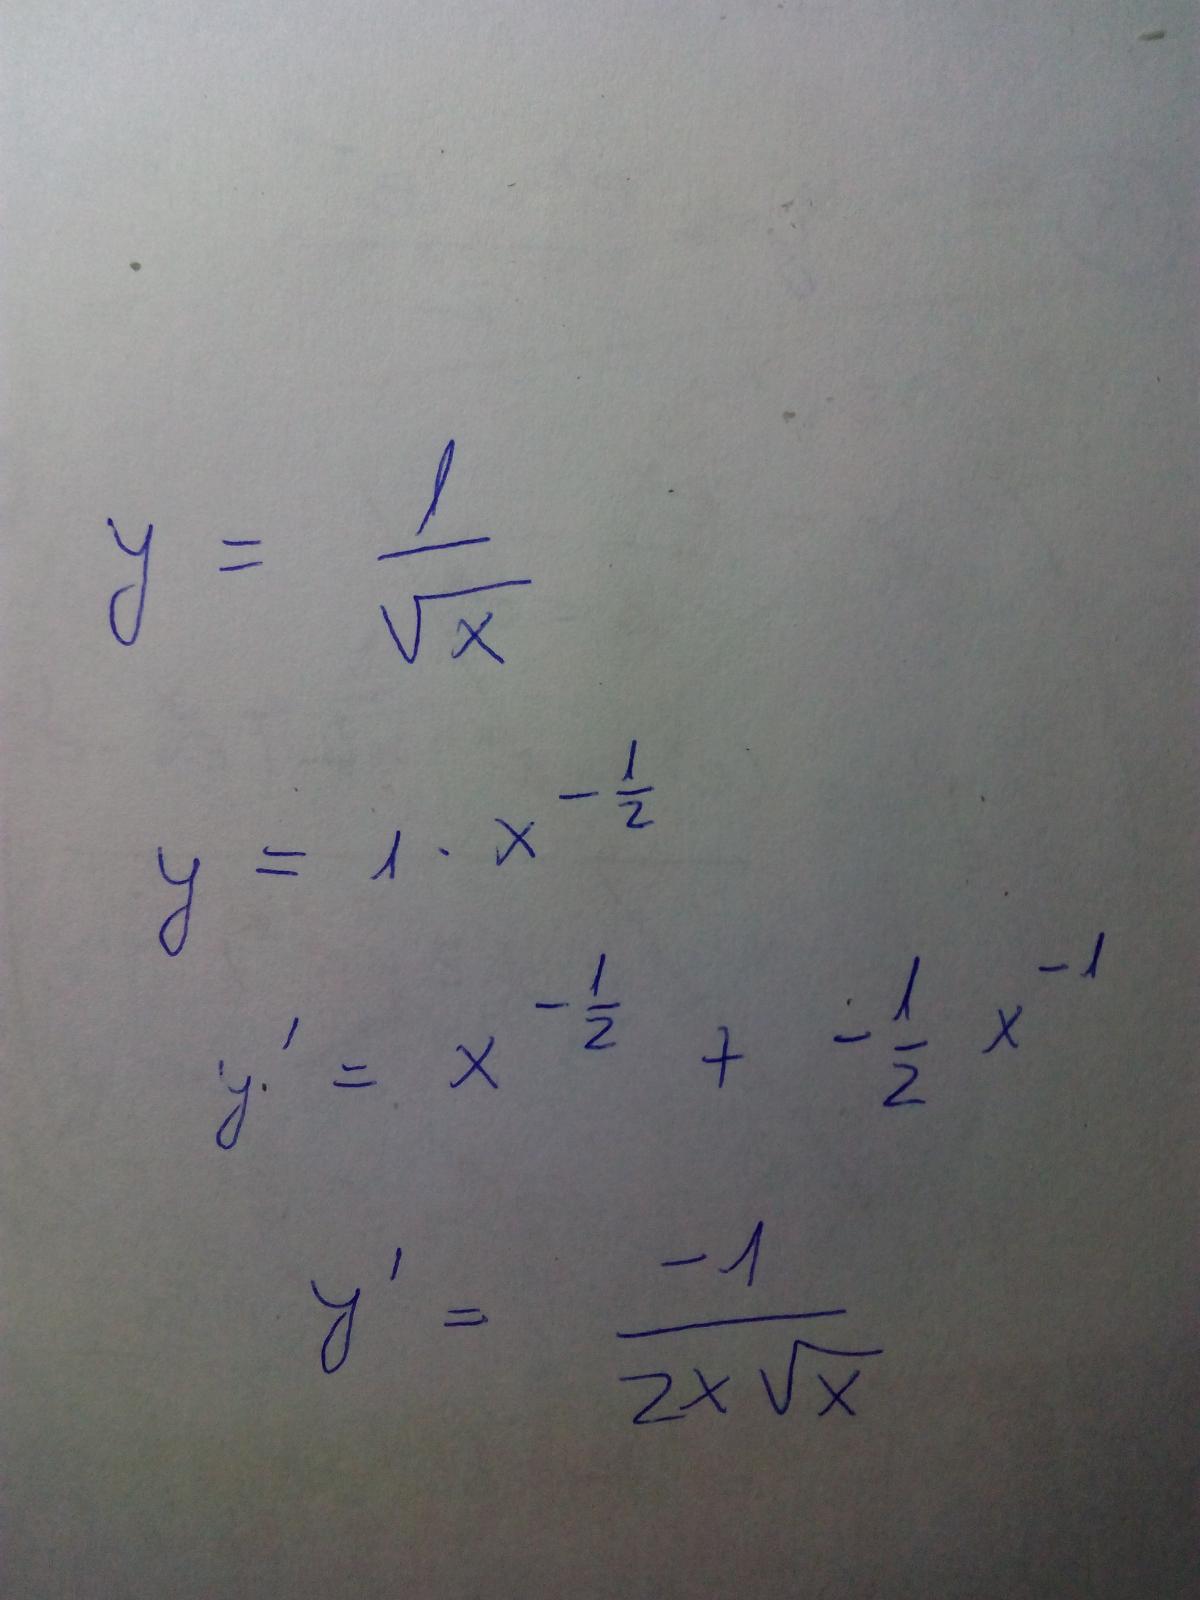 y = 1/√x
y = 1 · x^(-1/2)
y' = x^(-1/2) + -1/2 x^(-1)
y' = -1/(2x√x)